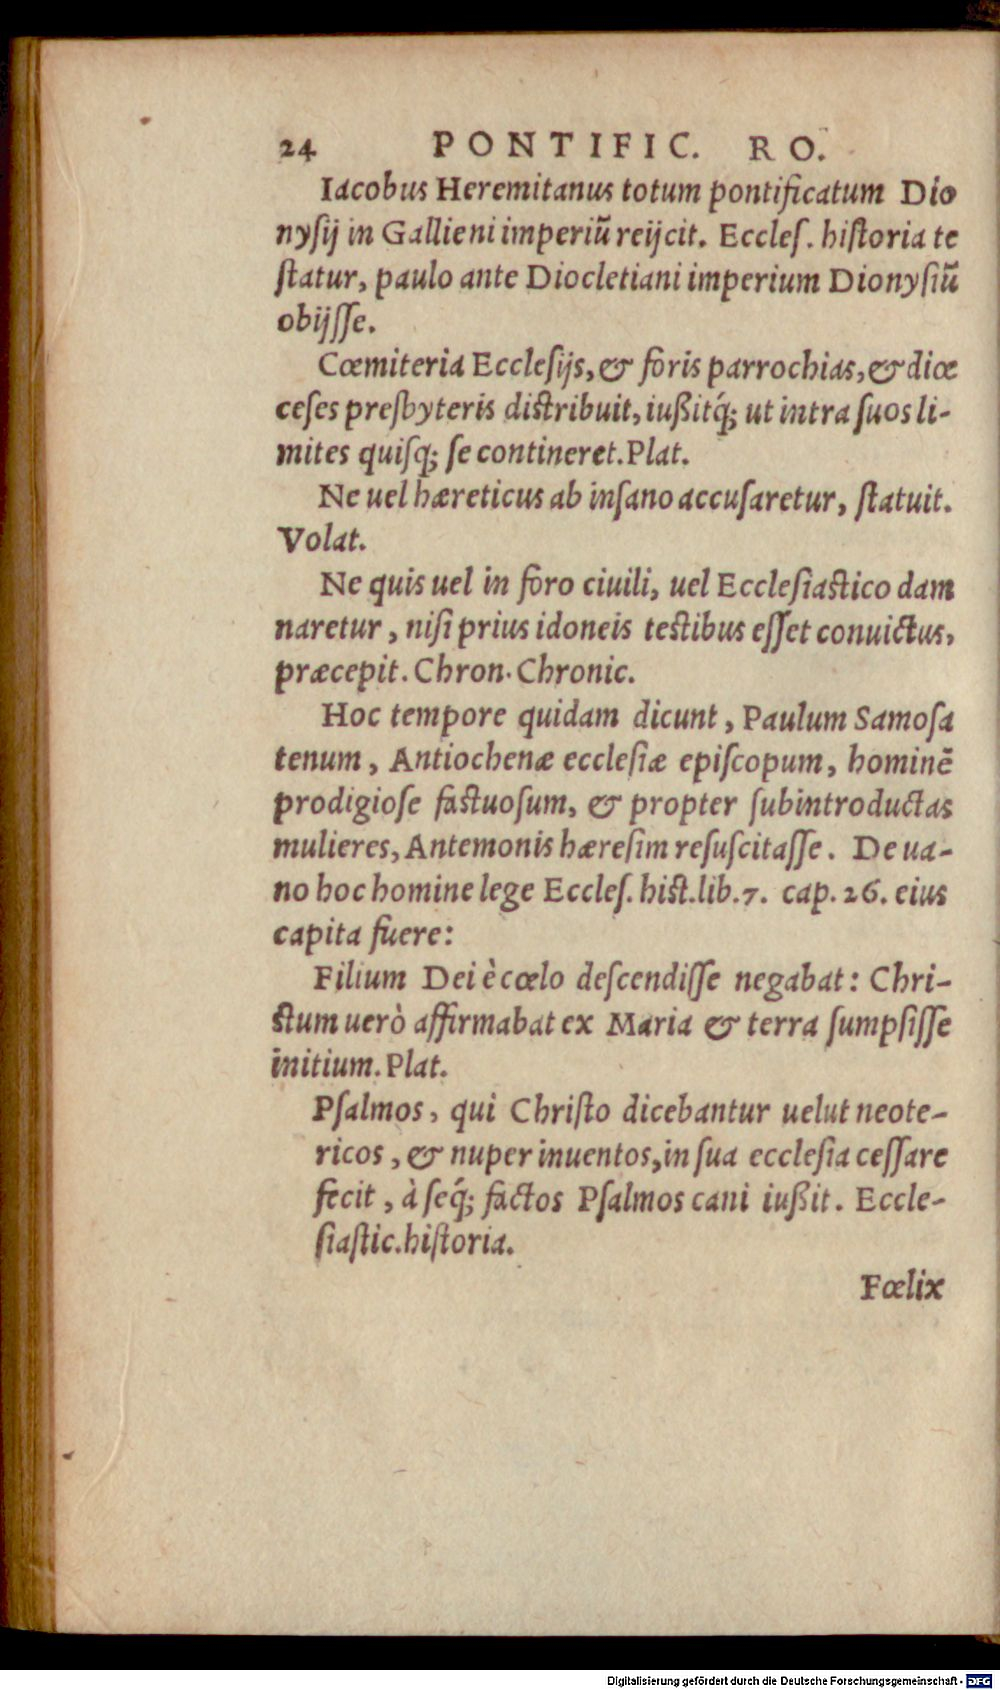 24 PONTIFIC. RO.
Iacobus Heremitanus totum pontificatum Dio
nyſij in Gallieni imperiũ reijcit. Eccleſ. hiſtoria te
ſtatur, paulo ante Diocletiani imperium Dionyſiũ
obijſſe.
Cœmiteria Eccleſijs, & foris parrochias, & diœ
ceſes preſbyteris diſtribuit, iußitq́; ut intra ſuos li-
mites quiſq; ſe contineret. Plat.
Ne uel hæreticus ab inſano accuſaretur, ſtatuit.
Volat.
Ne quis uel in foro ciuili, uel Eccleſiaſtico dam
naretur, niſi prius idoneis teſtibus eſſet conuictus,
præcepit. Chron. Chronic.
Hoc tempore quidam dicunt, Paulum Samoſa
tenum, Antiochenæ eccleſiæ epiſcopum, hominẽ
prodigioſe faſtuoſum, & propter ſubintroductas
mulieres, Antemonis hæreſim reſuſcitaſſe. De ua-
no hoc homine lege Eccleſ. hiſt. lib. 7. cap. 26. eius
capita fuere:
Filium Dei è cœlo deſcendiſſe negabat: Chri-
ſtum uerò affirmabat ex Maria & terra ſumpſiſſe
initium. Plat.
Pſalmos, qui Chriſto dicebantur uelut neote-
ricos, & nuper inuentos, in ſua eccleſia ceſſare
fecit, à ſeq́; factos Pſalmos cani iußit. Eccle-
ſiaſtic. hiſtoria.
Fœlix
Digitalisierung gefördert durch die Deutsche Forschungsgemeinschaft - DFG